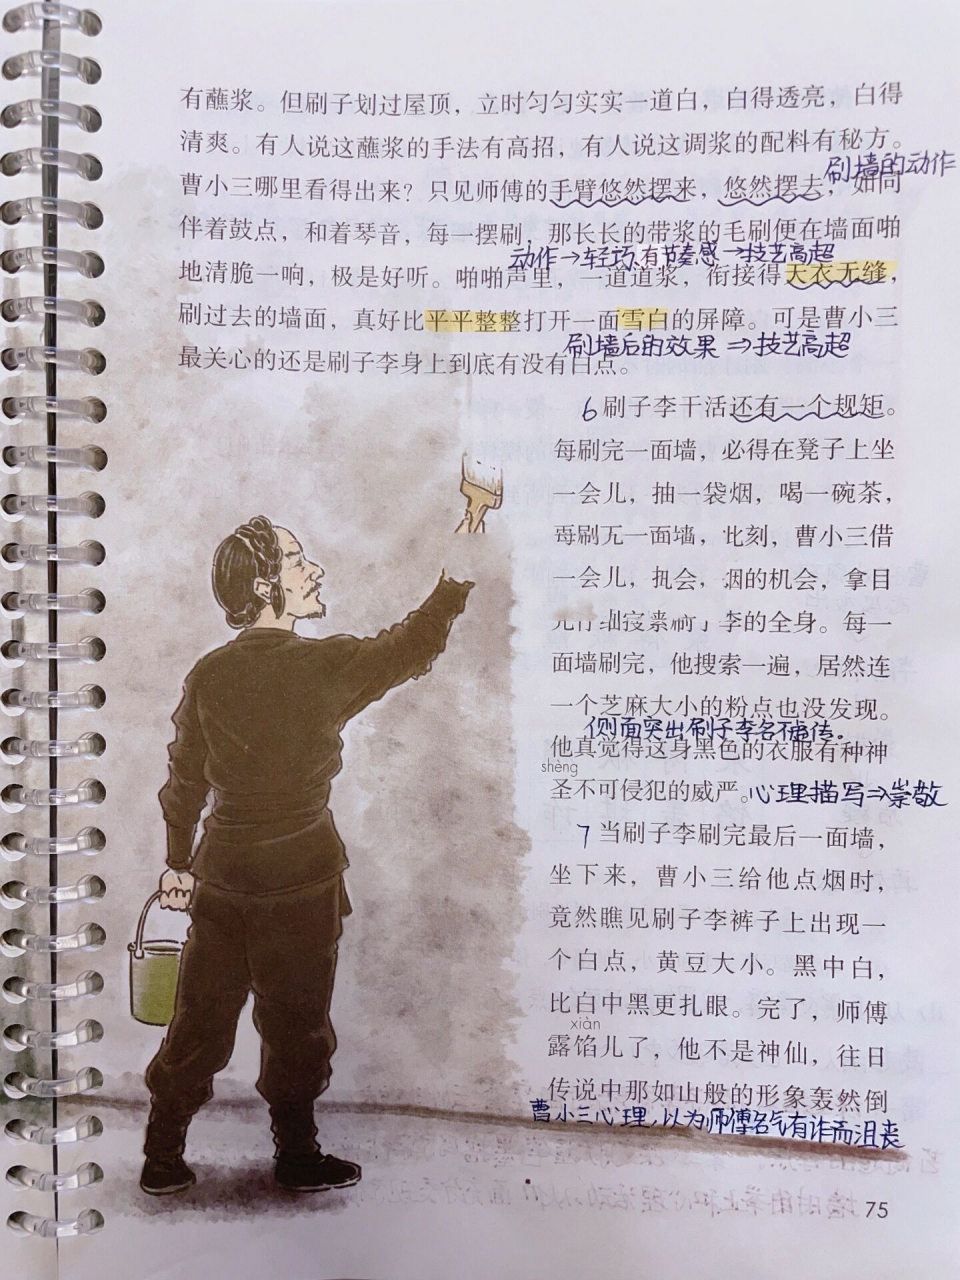 有蘸浆。但刷子划过屋顶，立时匀匀实实一道白，白得透亮，白得
清爽。有人说这蘸浆的手法有高招，有人说这调浆的配料有秘方。
刷墙的动作
曹小三哪里看得出来？只见师傅的手臂悠然摆来，悠然摆去，如同
伴着鼓点，和着琴音，每一摆刷，那长长的带浆的毛刷便在墙面啪
动作→轻巧有节奏感→技艺高超
地清脆一响，极是好听。啪啪声里，一道道浆，衔接得天衣无缝，
刷过去的墙面，真好比平平整整打开一面雪白的屏障。可是曹小三
刷墙后的效果⇒技艺高超
最关心的还是刷子李身上到底有没有白点。
6 刷子李干活还有一个规矩。
每刷完一面墙，必得在凳子上坐
一会儿，抽一袋烟，喝一碗茶，
一面墙，此刻，曹小三借
一会儿，的机会，拿目
李的全身。每一
面墙刷完，他搜索一遍，居然连
一个芝麻大小的粉点也没发现。
侧面突出刷子李名不虚传。
他真觉得这身黑色的衣服有种神
shèng
圣不可侵犯的威严。心理描写⇒崇敬
7 当刷子李刷完最后一面墙，
坐下来，曹小三给他点烟时，
竟然瞧见刷子李裤子上出现一
个白点，黄豆大小。黑中白，
比白中黑更扎眼。完了，师傅
xiàn
露馅儿了，他不是神仙，往日
传说中那如山般的形象轰然倒
曹小三心理，以为师傅名气有诈而沮丧
75